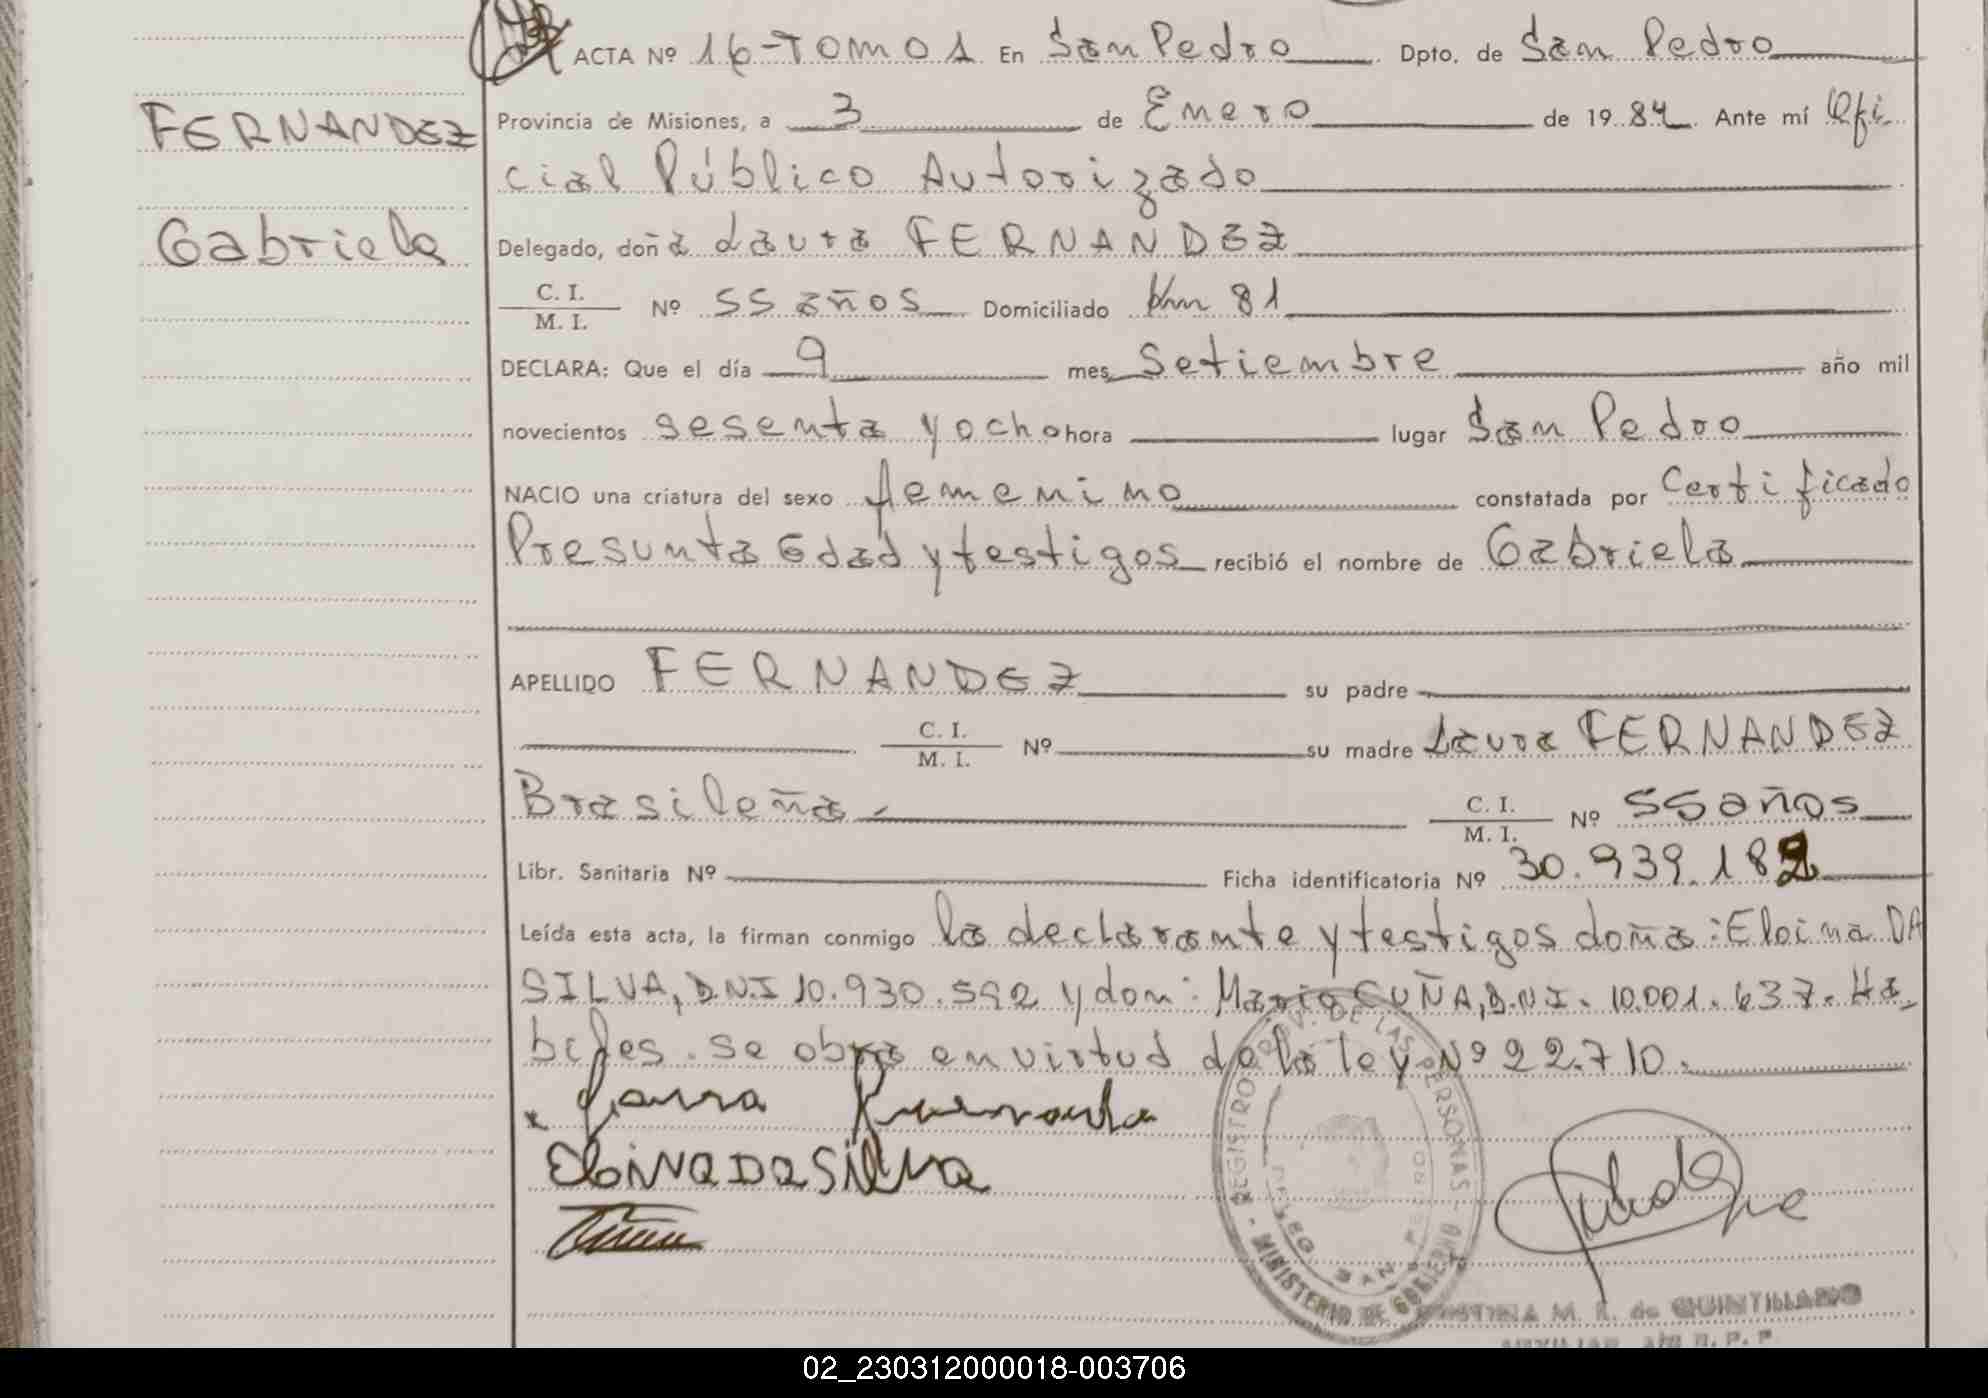 ACTA Nº 16-TOMO 1 En San Pedro Dpto. de San Pedro
FERNANDEZ
Provincia de Misiones, a 3 de Enero de 1984 Ante mí Ofi
cial Público Autorizado
Gabriela
Delegado, doña Laura FERNANDEZ
C. I.
M. I. Nº 55 años Domiciliado km 81
DECLARA: Que el día 9 mes Setiembre año mil
novecientos sesenta y ocho hora lugar San Pedro
NACIO una criatura del sexo femenino constatada por Certificado
Presunta Edad y testigos recibió el nombre de Gabriela
APELLIDO FERNANDEZ su padre
C. I.
M. I. Nº su madre Laura FERNANDEZ
Brasileña
C. I.
M. I. Nº 55 años
Libr. Sanitaria Nº Ficha identificatoria Nº 30.939.182
Leída esta acta, la firman conmigo la declarante y testigos doña: Eloina DA
SILVA, D.N.I 10.930.592 y don: Mario CUÑA, D.N.I. 10.001.637. Ha,
biles. Se obra en virtud de la ley Nº 22.710.
Eloina Da Silva
REGISTRO PROV. DE LAS PERSONAS - MINISTERIO DE GOBIERNO
DELEG. SAN PEDRO
M. E. de QUINTILLANO
02_230312000018-003706